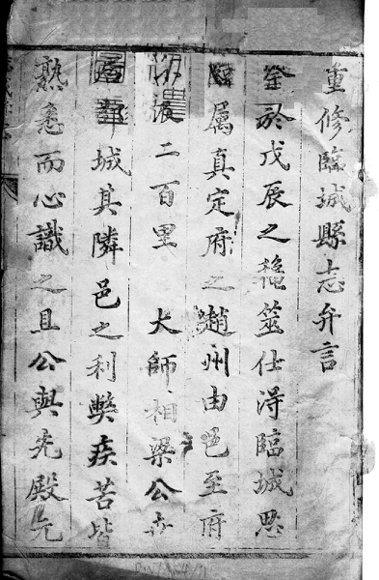 重修臨城縣志弁言
余於戊辰之穐筮仕得臨城思
臨属真定府之趙州由邑至府
二百里 大師相梁公世
居郡城其隣邑之利弊疾苦皆
熟悉而心識之且公與先殿元